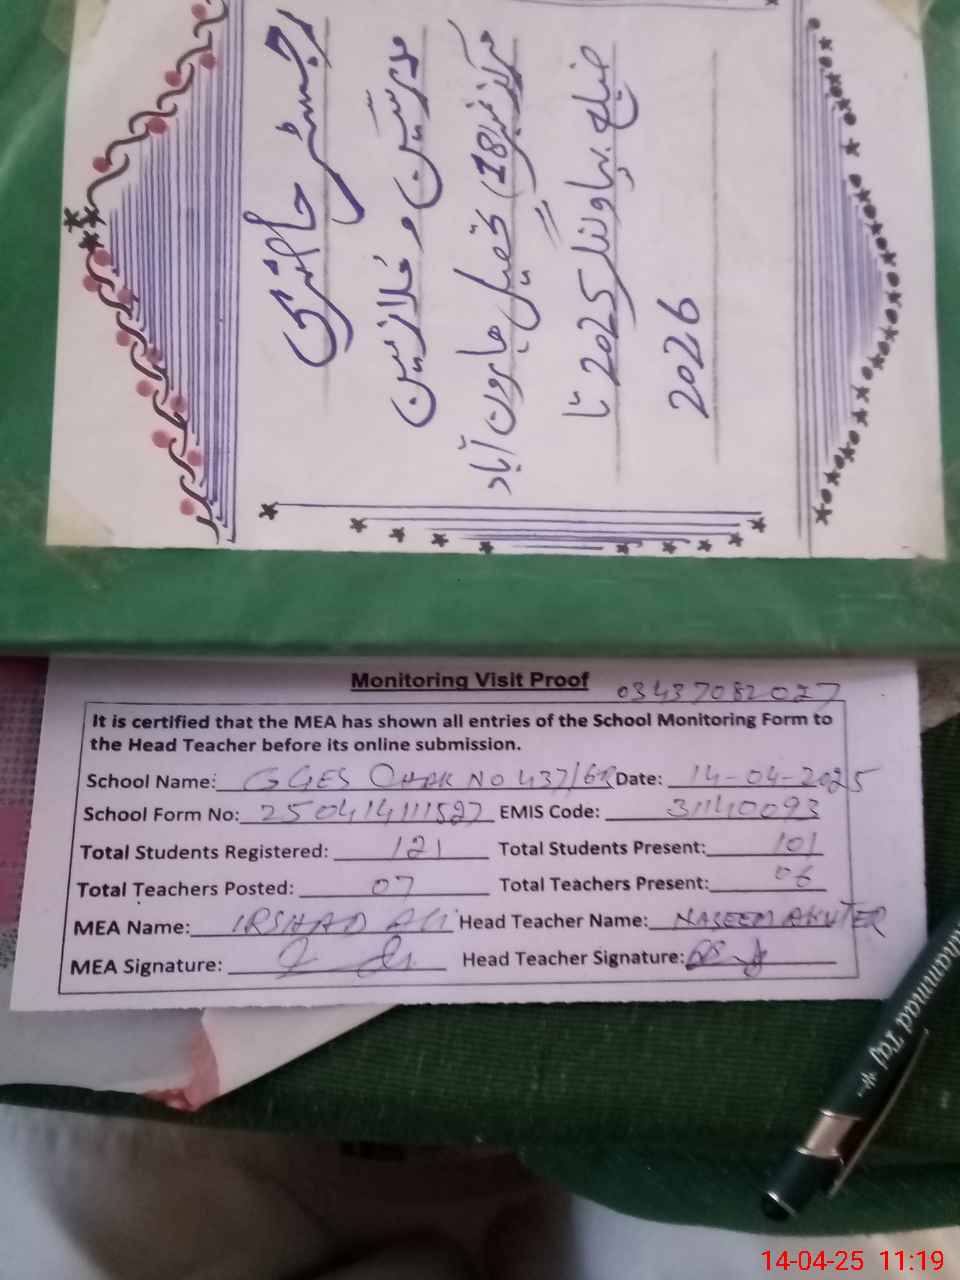 رجسٹر حاضری
مدرسین و ملازمین
مرکز نمبر 18، تحصیل ہارون آباد
ضلع بہاولنگر 2025 تا
2026
Monitoring Visit Proof
03437082027
It is certified that the MEA has shown all entries of the School Monitoring Form to
the Head Teacher before its online submission.
School Name: GGES CHAK NO 437/6R Date: 14-04-2025
School Form No: 250414111527 EMIS Code: 31140093
Total Students Registered: 121 Total Students Present: 101
Total Teachers Posted: 07 Total Teachers Present: 06
MEA Name: IRSHAD ALI Head Teacher Name: NASEEM AKHTER
MEA Signature: Head Teacher Signature:
Taj
14-04-25 11:19